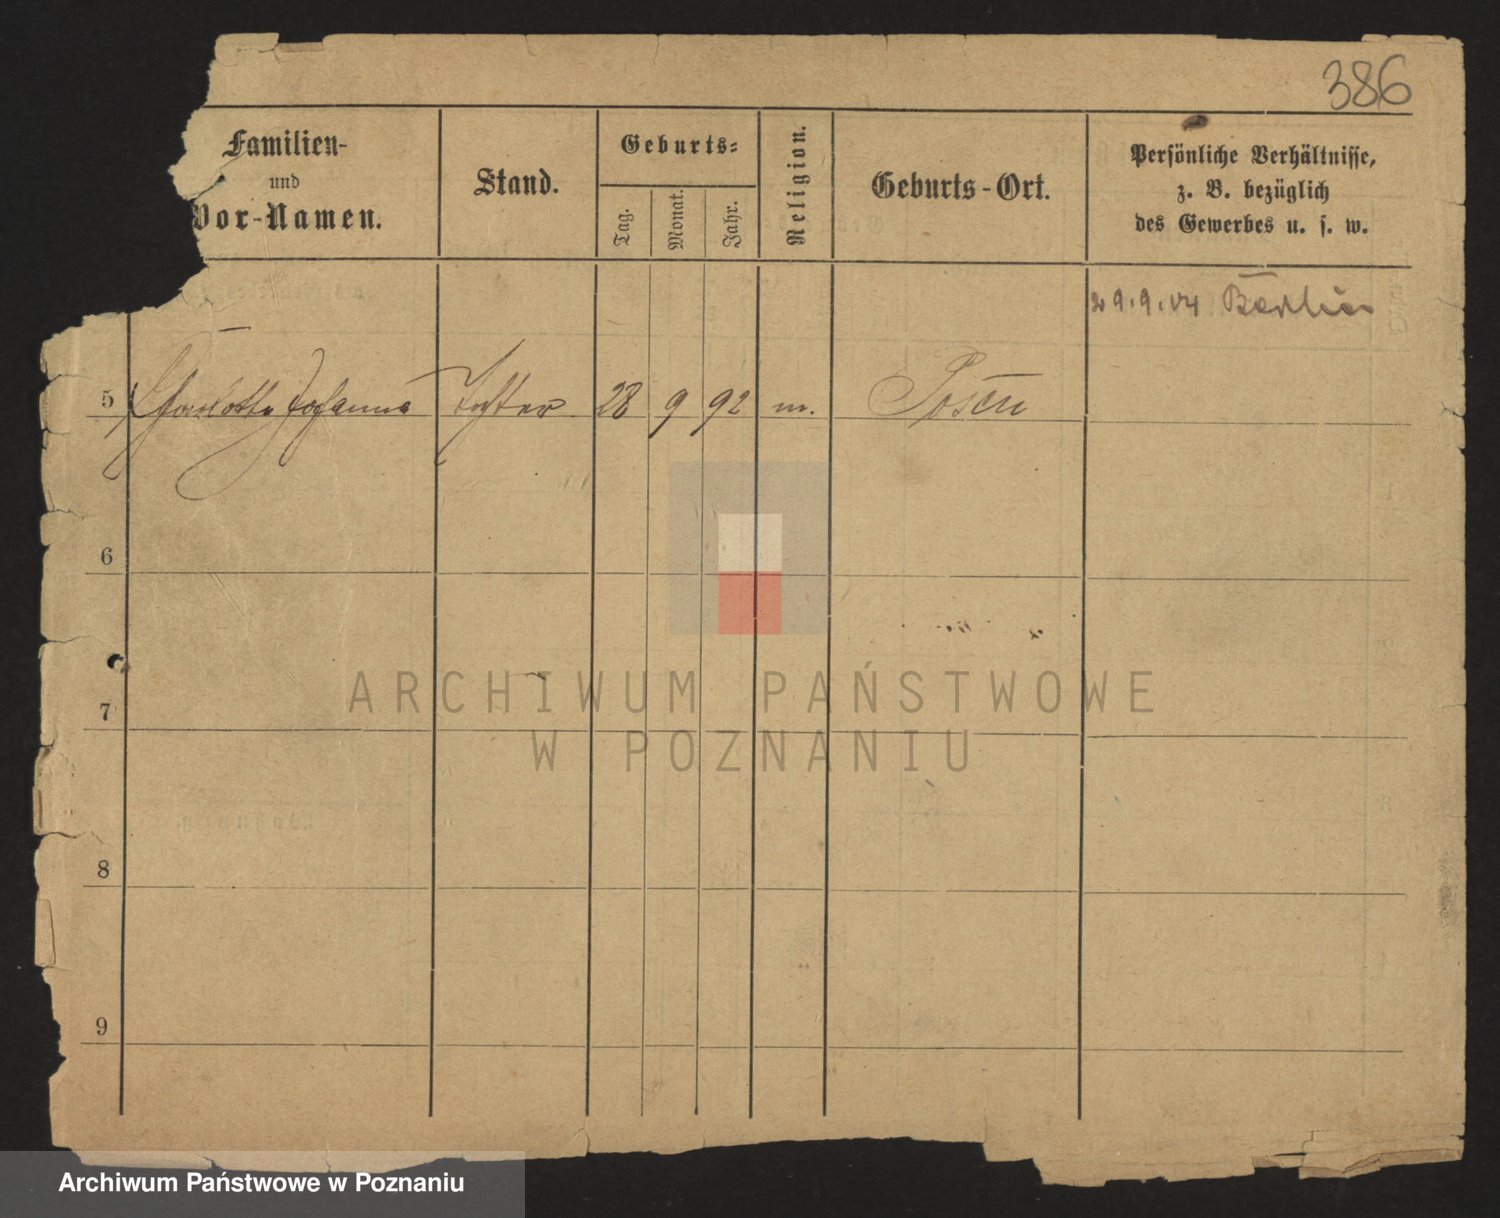 386
Familien-
und
Vor-Namen.
Stand.
Geburts-
Tag.
Monat.
Jahr.
Religion.
Geburts-Ort.
Persönliche Verhältnisse,
z. B. bezüglich
des Gewerbes u. s. w.
29.9.04 Berlin
5 Charlotte Johanna Tochter 28 9 92 m. Posen
6
7
8
9
ARCHIWUM PAŃSTWOWE
W POZNANIU
Archiwum Państwowe w Poznaniu